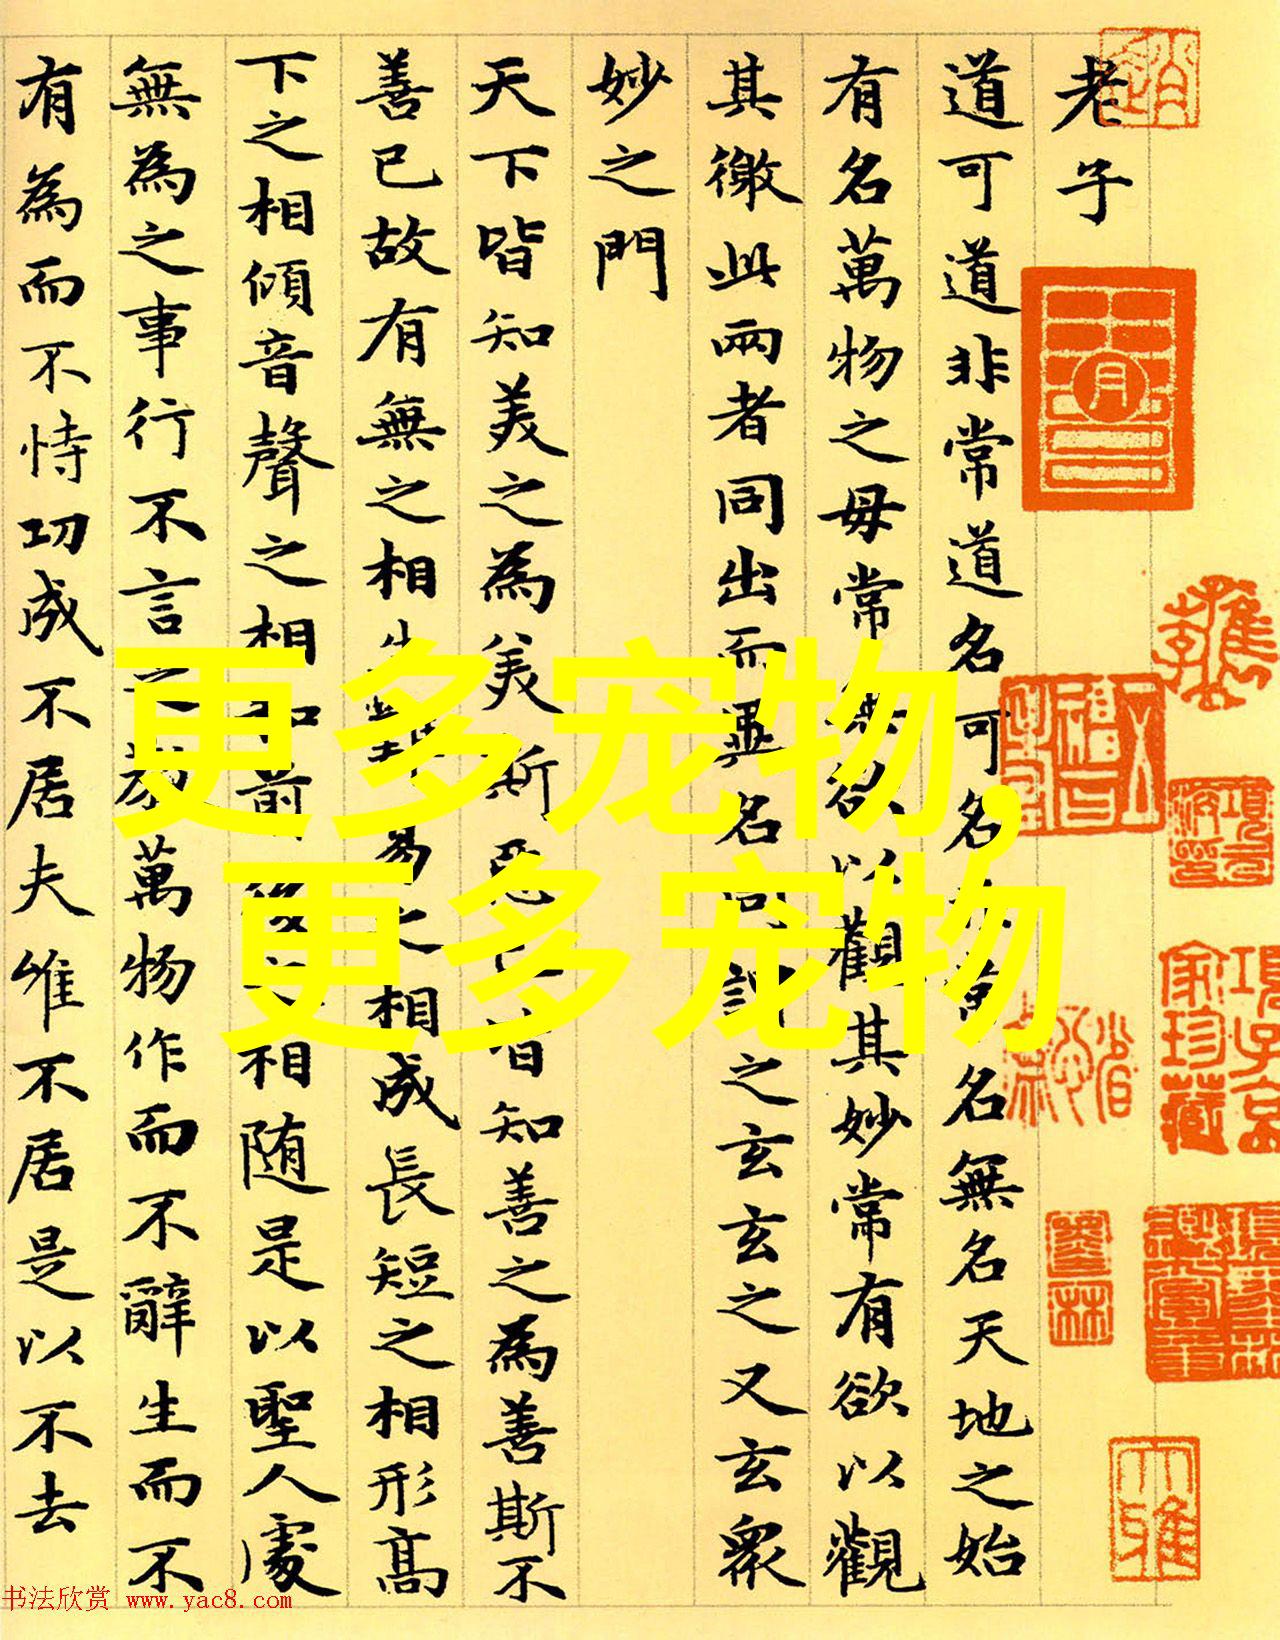 老子
道可道非常道名可名非常名無名天地之始
有名萬物之母常無欲以觀其妙常有欲以觀
其徼此兩者同出而異名同謂之玄玄之又玄衆
妙之門
天下皆知美之為美斯惡已皆知善之為善斯不
善已故有無之相生難易之相成長短之相形髙
下之相傾音聲之相和前後之相随是以聖人處
無為之事行不言之教萬物作而不辭生而不
有為而不恃功成不居夫唯不居是以不去
更多宠物,
更多宠物
項子京
家珍藏
书法欣赏 www.yac8.com